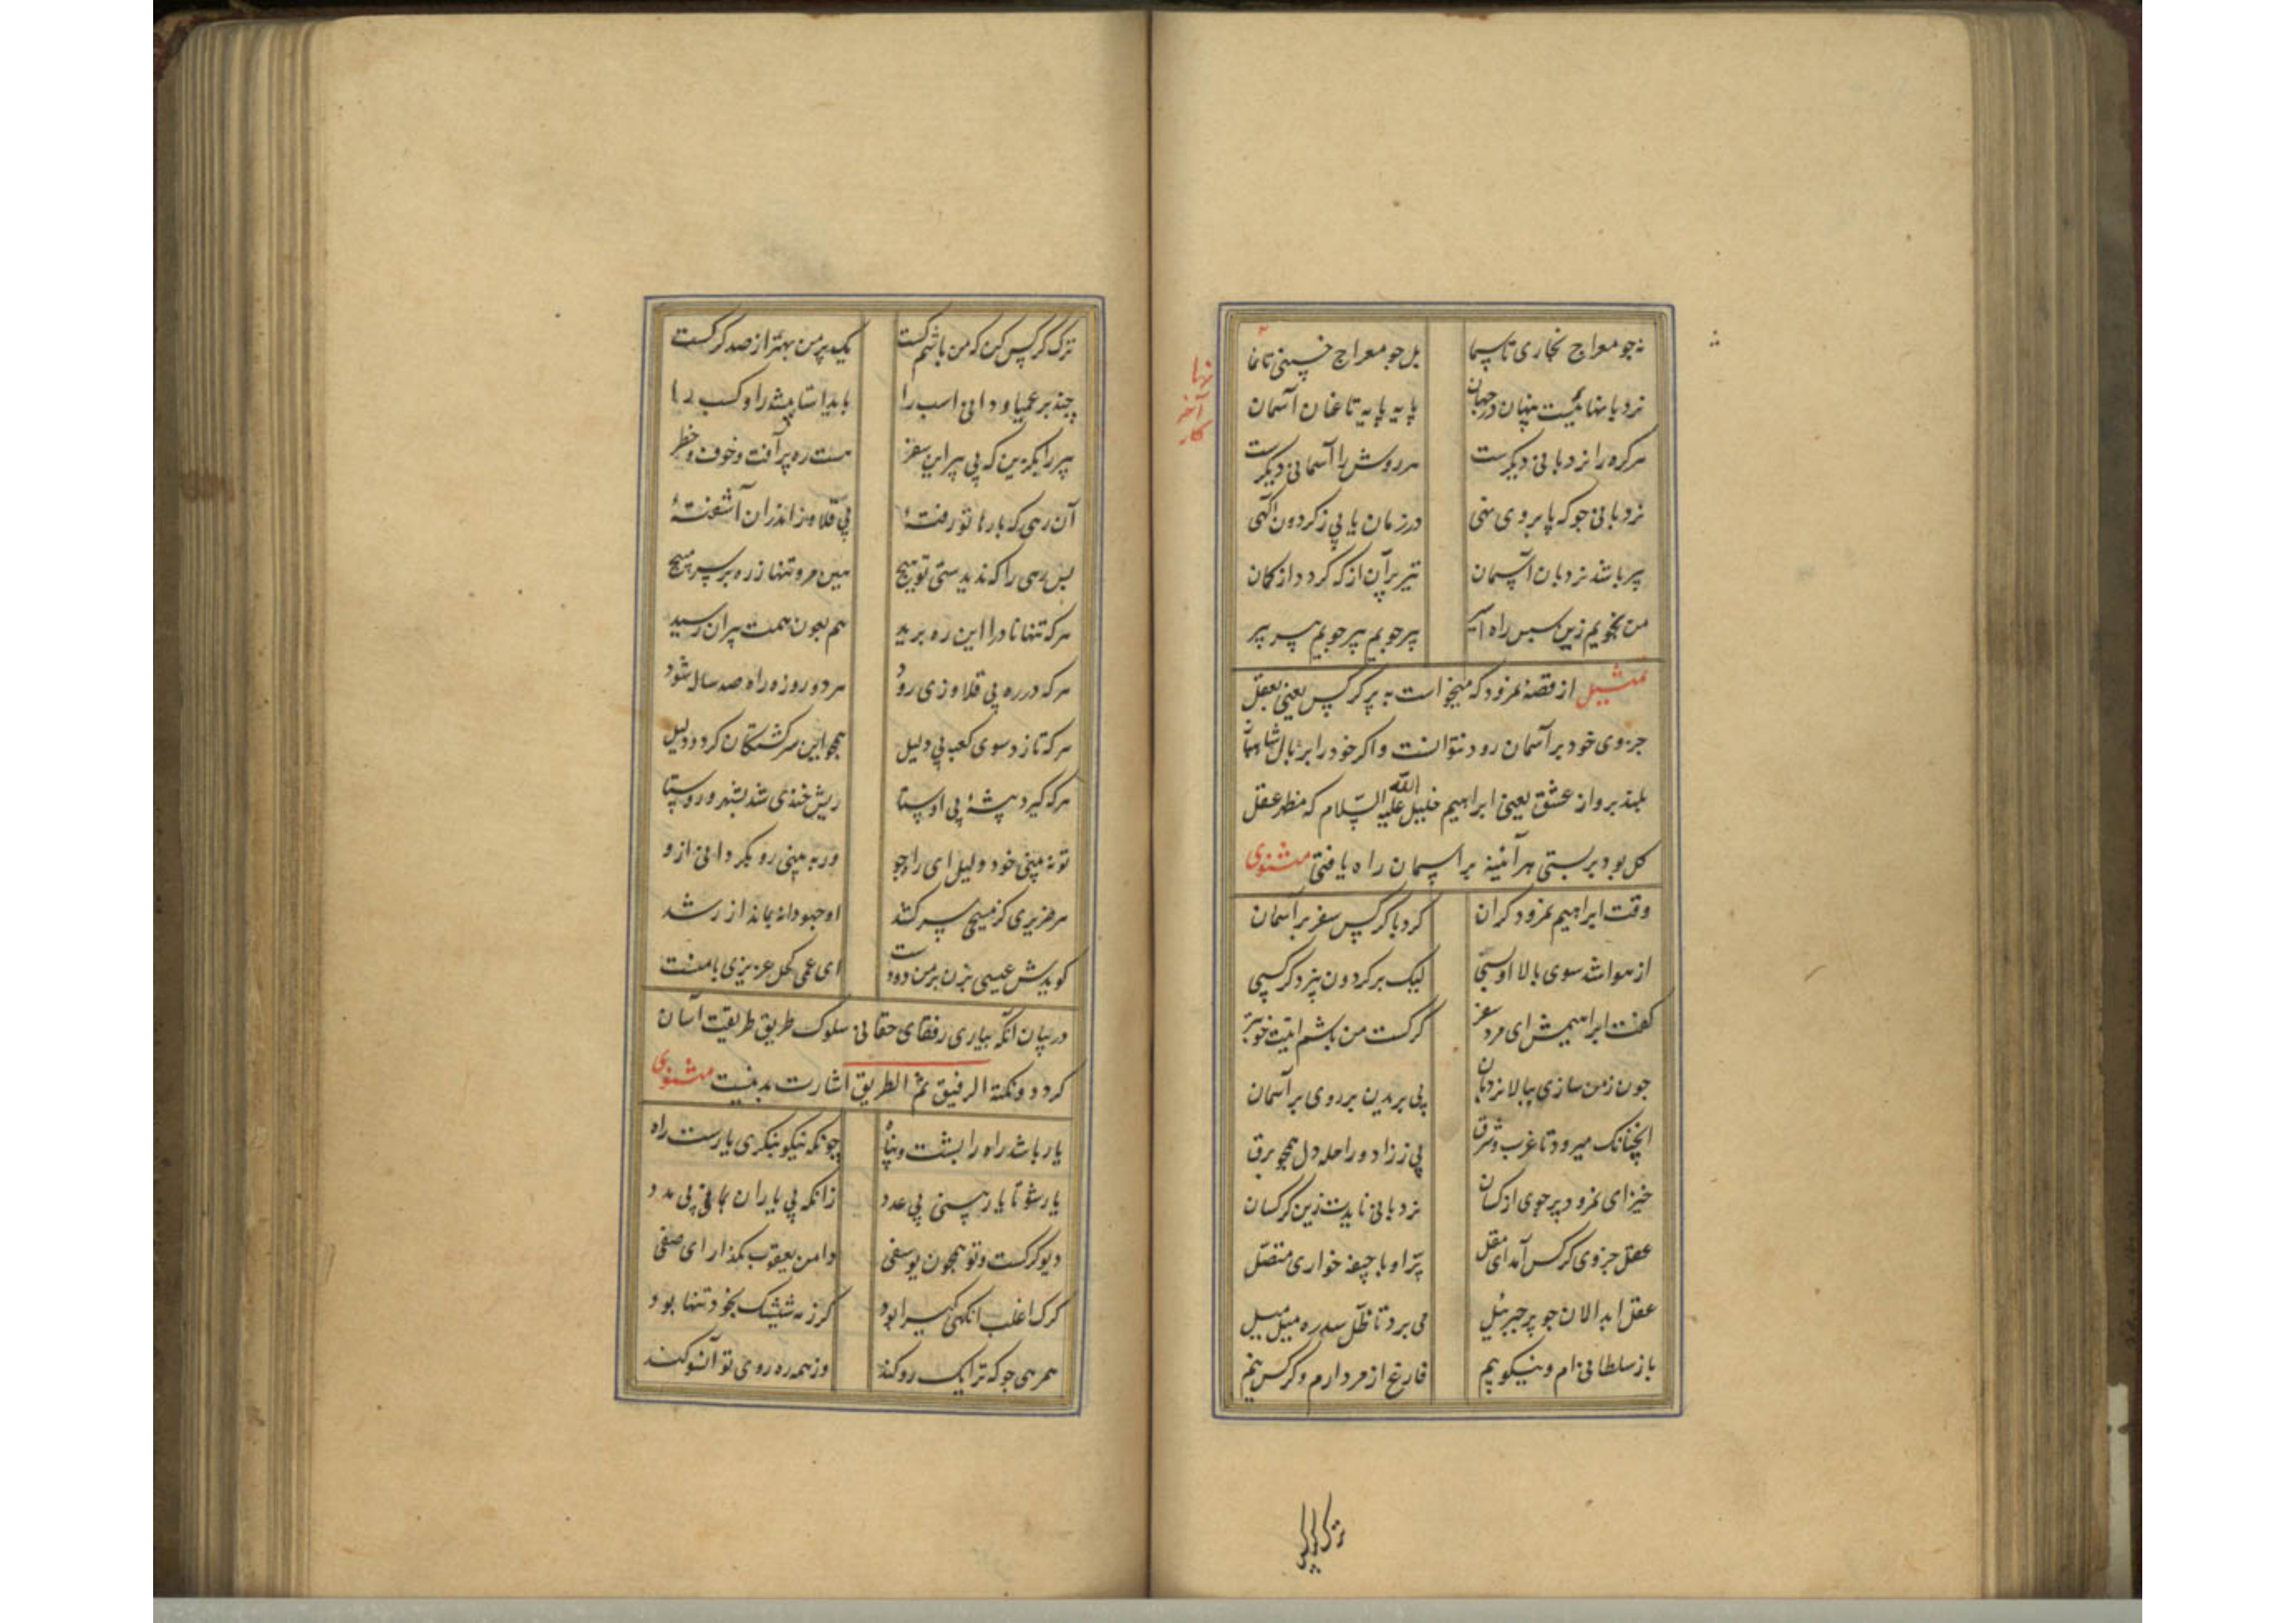 نه جو معراج بخاری تا سما بل جو معراج جنینی تا نها
نردبانهاییست پنهان در جهان پایه پایه تا عنان آسمان
هر کره را نردبانی دیکرست هر روش را آسمانی دیکرست
نردبانی جو که پا بر وی نهی در زمان یابی ز کردون آکهی
پیر باشد نردبان آسمان تیر پران از که کردد از کمان
من نجویم زین سپس راه اثیر پیر جویم پیر جویم پیر پیر
تمثیل از قصه نمرود که میخواست به پر کرکس یعنی بعقل
جزوی خود بر آسمان رود نتوانست و اکر خود را بر بال شاهباز
بلند پرواز عشق یعنی ابراهیم خلیل الله علیه السلام که مظهر عقل
کل بود بربستی هر آئینه بر آسمان راه یافتی مثنوی
وقت ابراهیم نمرود کران کرد با کرکس سفر بر آسمان
از هوا شد سوی بالا او بسی لیک بر کردون نپرد کرکسی
کفت ابراهیمش ای مرد سفر کرکست من باشم اینت خوبتر
جون ز من سازی ببالا نردبان بی پریدن بر روی بر آسمان
انچنانک میرود تا غرب و شرق بی ز زاد و راحله دل همجو برق
خیز ای نمرود پر جوی از کسان نردبانی نایدت زین کرکسان
عقل جزوی کرکس آمد ای مقل پر او با جیفه خواری متصل
عقل ابدالان جو پر جبرئیل می پرد تا ظل سدره میل میل
باز سلطانی ام و نیکو پیم فارغ از مردارم و کرکس نیم
نها
آخر
کار
ترک کرکس کن که من باشم کست یک پر من بهتر از صد کرکست
چند بر عمیا دوانی اسب را باید استا پیشه را و کسب را
پیر را بکزین که بی پیر این سفر هست ره پر آفت و خوف و خطر
آن رهی که بارها تو رفتهٔ بی قلاوز اندران آشفتهٔ
بس رهی را که ندیدستی تو هیچ هین مرو تنها ز رهبر سر مپیچ
هر که تنها نادرا این ره برید هم بعون همت پیران رسید
هر که در ره بی قلاوزی رود هر دو روزه راه صد ساله شود
هر که تازد سوی کعبه بی دلیل همجو این سرکشتکان کردد ذلیل
هر که کیرد پیشهٔ بی اوستا ریش خندی شد بشهر و روستا
تو نه بینی خود دلیل ای راه جو ور به بینی رو بکردانی ازو
هر ضریری کز مسیحی سر کشد او جهودانه بماند از رشد
کویدش عیسی بزن بر من دو دست ای عمی کحل عزیزی با منست
در بیان آنکه بیاری رفقای حقانی سلوک طریق طریقت آسان
کردد و نکته الرفیق ثم الطریق اشارت بدینست مثنوی
یار باشد راه را پشت و پناه چونکه نیکو بنکری یارست راه
یار شو تا یار بینی بی عدد زانکه بی یاران بمانی بی مدد
دیو کرکست و تو همجون یوسفی دامن یعقوب مکذار ای صفی
کرک اغلب آنکهی کیرا بود کز رمه شیشک بخود تنها بود
همرهی جو که ترا یک رو کند وز همه ره روی تو آنسو کند